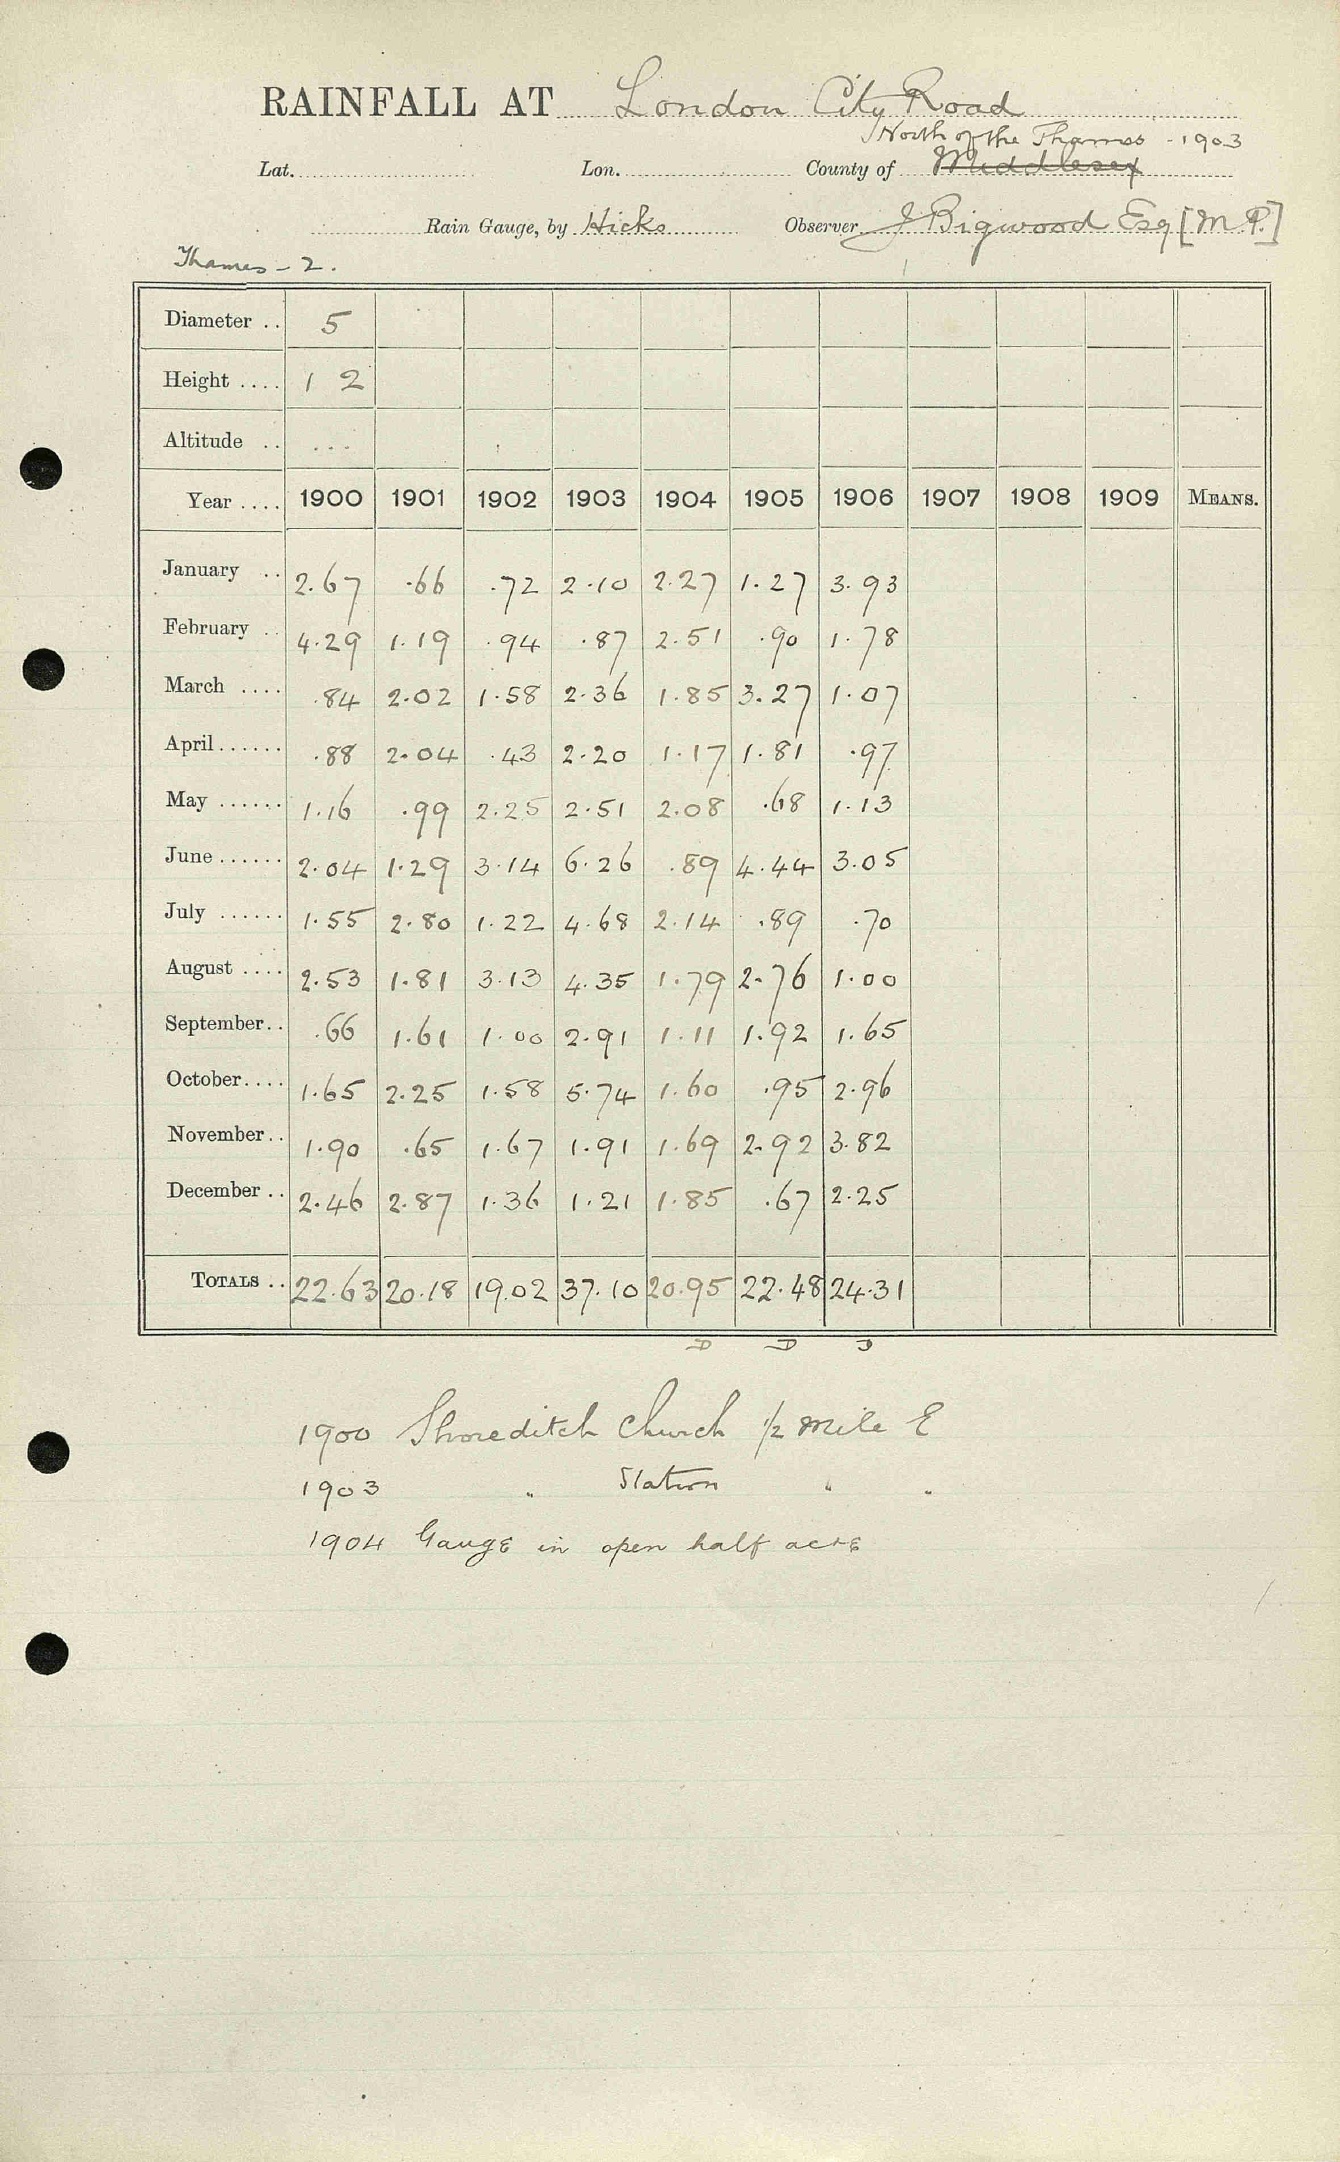 RAINFALL AT London City Road
North of the Thames - 1903
Lat. Lon. County of Middlesex
Rain Gauge, by Hicks Observer J Bigwood Esq [M.P.]
Thames - 2.
Diameter .. 5
Height .... 1 2
Altitude .. ...
Year .... 1900 1901 1902 1903 1904 1905 1906 1907 1908 1909 MEANS.
January .. 2.67 .66 .72 2.10 2.27 1.27 3.93
February .. 4.29 1.19 .94 .87 2.51 .90 1.78
March .... .84 2.02 1.58 2.36 1.85 3.27 1.07
April ...... .88 2.04 .43 2.20 1.17 1.81 .97
May ...... 1.16 .99 2.25 2.51 2.08 .68 1.13
June ...... 2.04 1.29 3.14 6.26 .89 4.44 3.05
July ...... 1.55 2.80 1.22 4.68 2.14 .89 .70
August .... 2.53 1.81 3.13 4.35 1.79 2.76 1.00
September.. .66 1.61 1.00 2.91 1.11 1.92 1.65
October.... 1.65 2.25 1.58 5.74 1.60 .95 2.96
November.. 1.90 .65 1.67 1.91 1.69 2.92 3.82
December .. 2.46 2.87 1.36 1.21 1.85 .67 2.25
TOTALS .. 22.63 20.18 19.02 37.10 20.95 22.48 24.31
D D D
1900 Shoreditch Church 1/2 Mile E
1903 " Station " "
1904 Gauge in open half acre